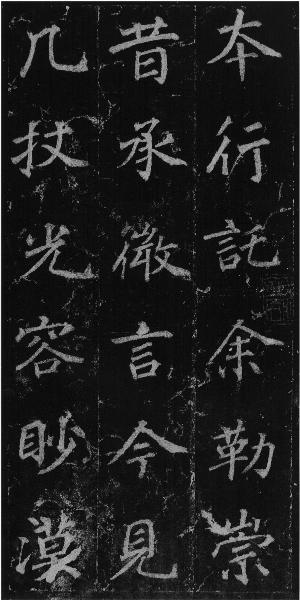 夲行託余勒崇
昔承微言今見
几杖光容眇漠